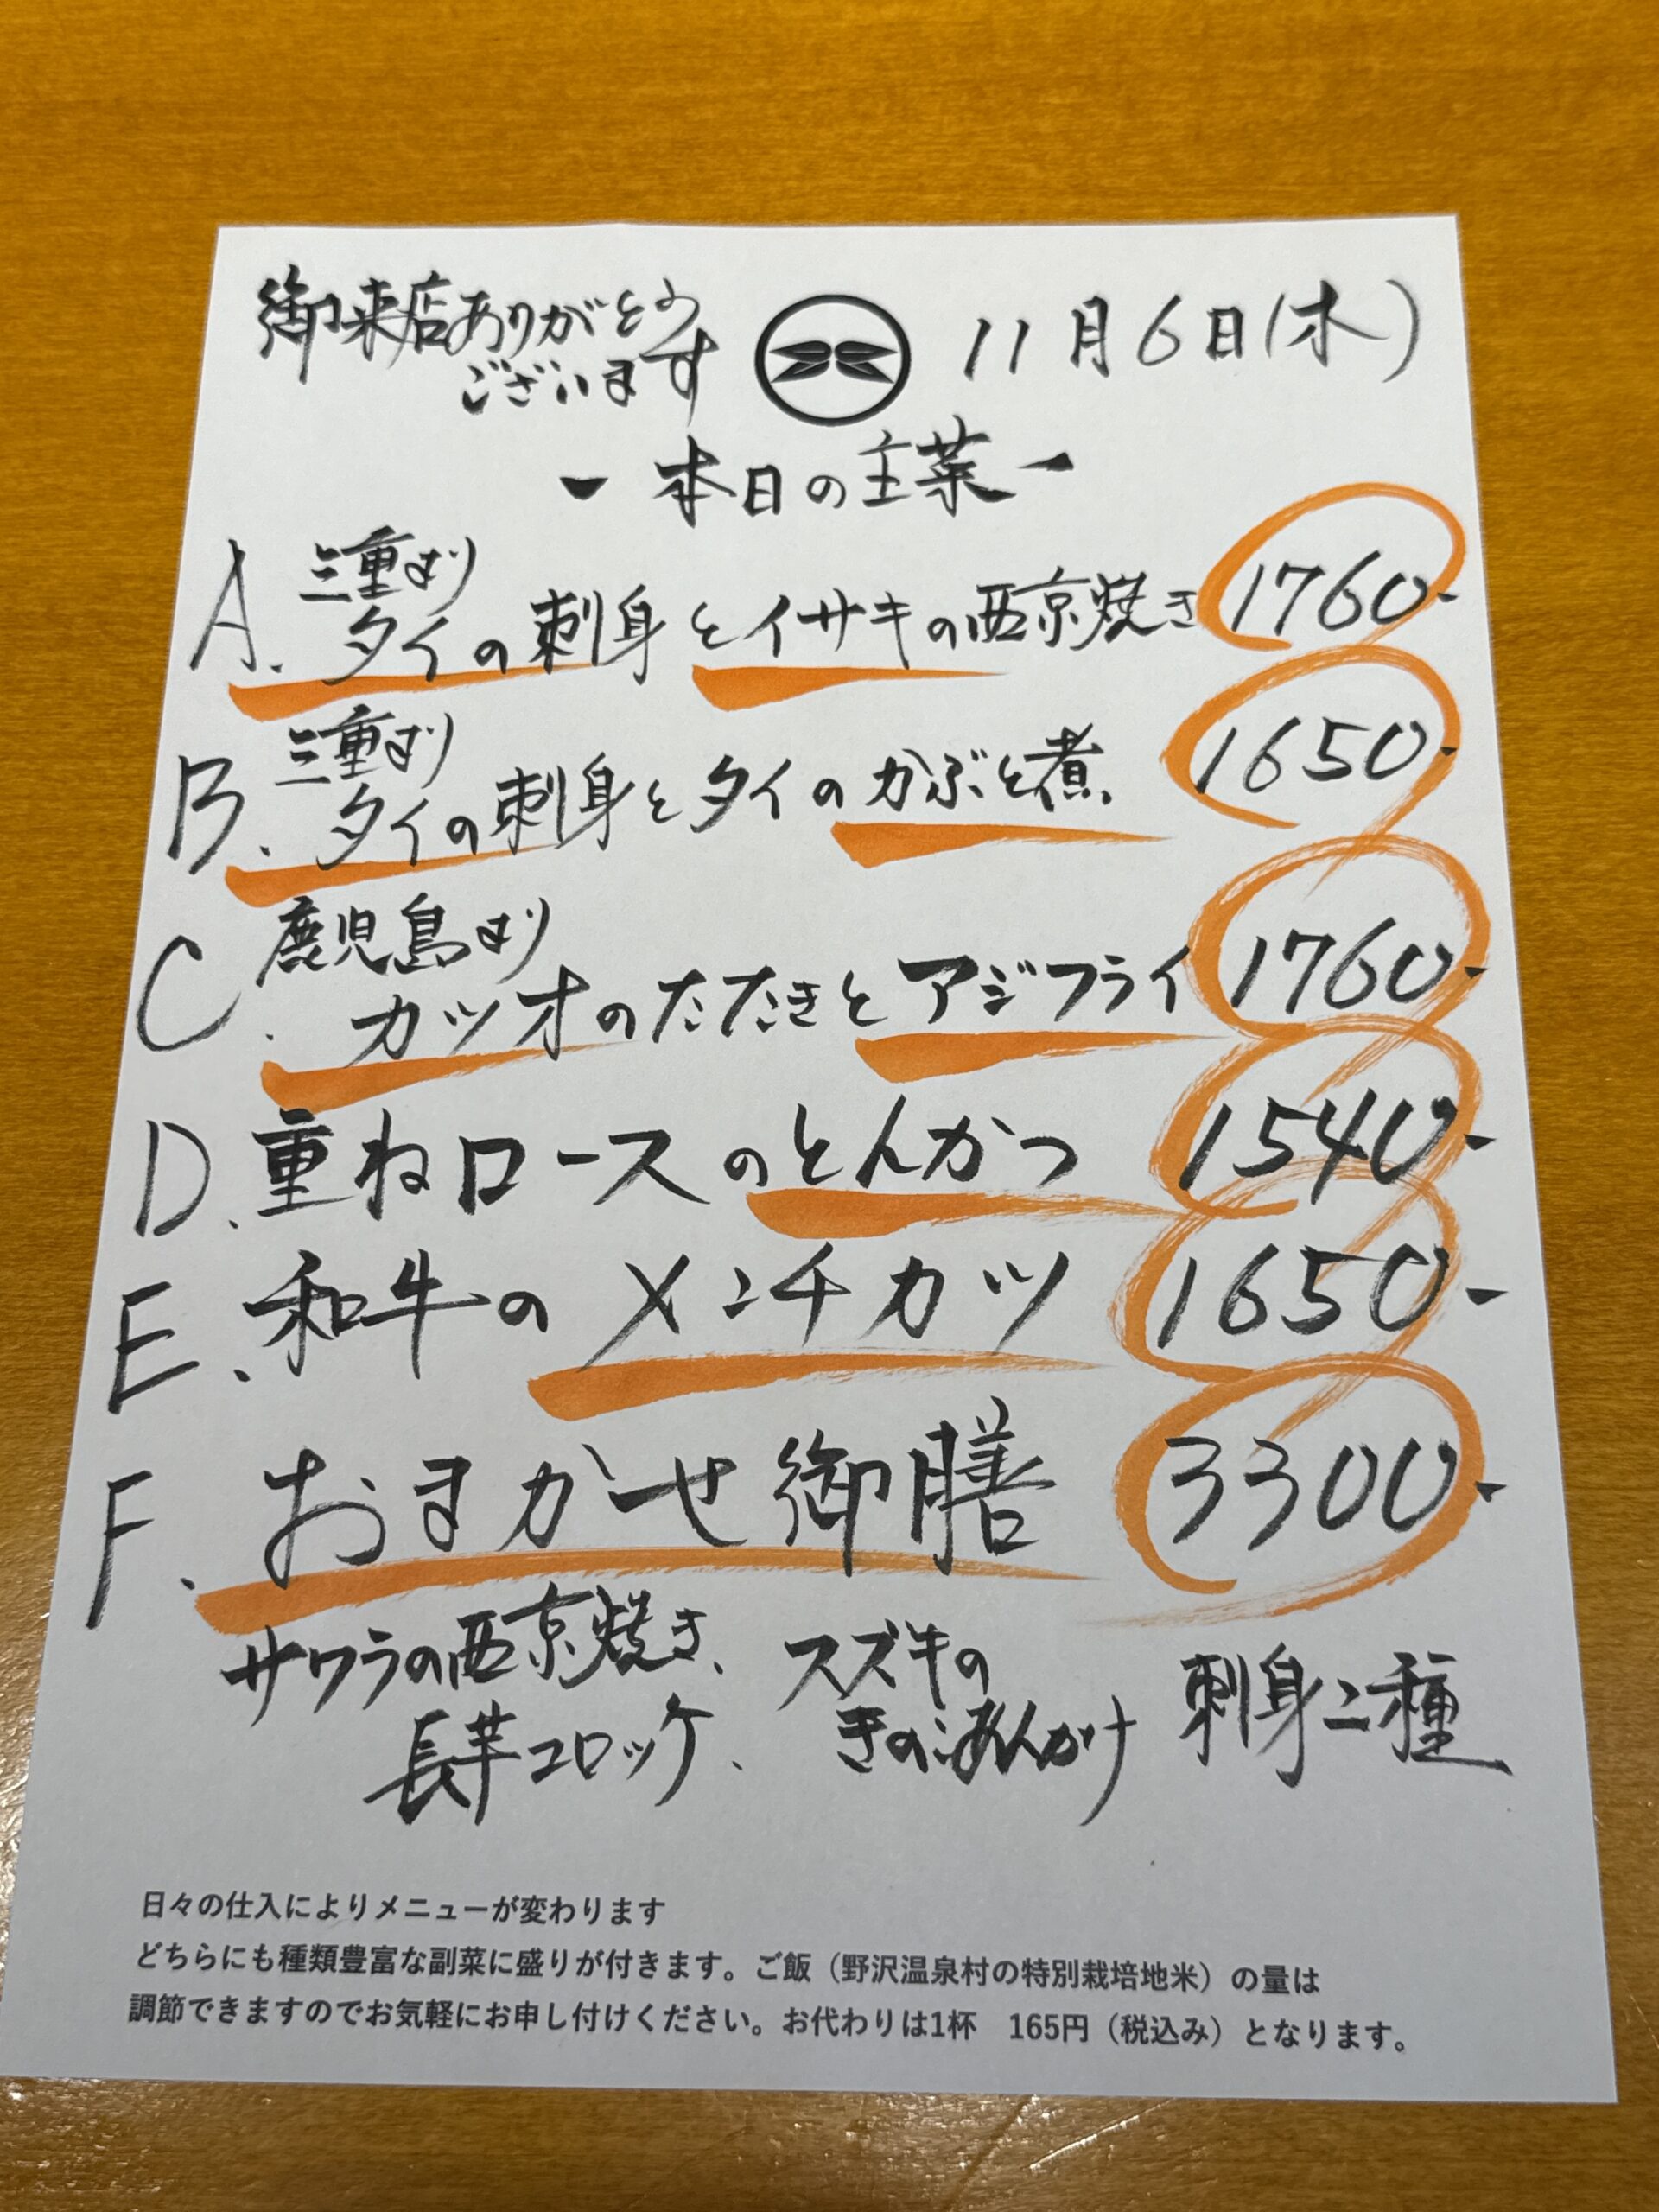 御来店ありがとう
ございます
11月6日(木)
- 本日の主菜 -
三重より
A. タイの刺身とイサキの西京焼き 1760-
三重より
B. タイの刺身とタイのかぶと煮 1650-
鹿児島より
C. カツオのたたきとアジフライ 1760-
D. 重ねロースのとんかつ 1540-
E. 和牛のメンチカツ 1650-
F. おまかせ御膳 3300-
サワラの西京焼き、スズキの
きのこあんかけ 刺身二種
長芋コロッケ、
日々の仕入によりメニューが変わります
どちらにも種類豊富な副菜に盛りが付きます。ご飯（野沢温泉村の特別栽培地米）の量は
調節できますのでお気軽にお申し付けください。お代わりは1杯　165円（税込み）となります。